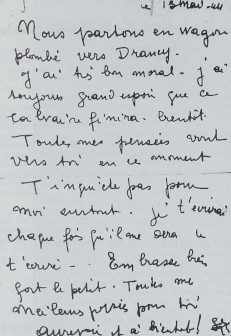 le 13 Mai. 44
Nous partons en wagon
plombé vers Drancy.
J'ai très bon moral. j'ai
toujours grand espoir que ce
calvaire finira. bientôt.
Toutes mes pensées vont
vers toi en ce moment
T'inquiete pas pour
moi surtout. je t'écrirai
chaque fois qu'il me sera
t'écrire - . Embrasse bien
fort le petit. Toutes mes
meilleurs pensées pour toi
aurevoir et à bientôt!